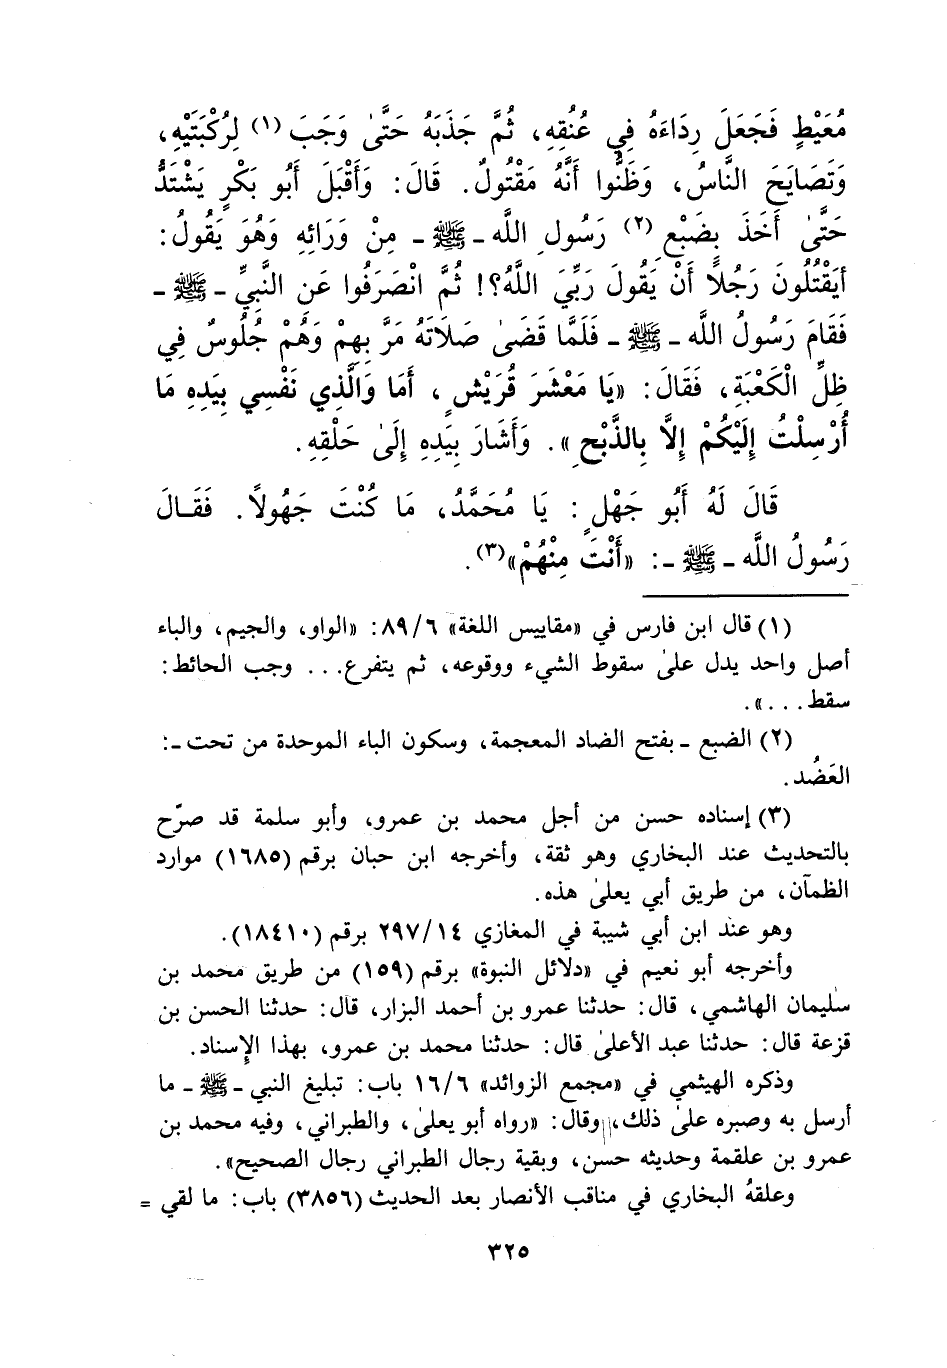 مُعَيْطٍ فَجَعَلَ رِدَاءَهُ فِي عُنُقِهِ، ثُمَّ جَذَبَهُ حَتَّىٰ وَجَبَ (١) لِرُكْبَتَيْهِ،
وَتَصَايَحَ النَّاسُ، وَظَنُّوا أَنَّهُ مَقْتُولٌ. قَالَ: وَأَقْبَلَ أَبُو بَكْرٍ يَشْتَدُّ
حَتَّىٰ أَخَذَ بِضَبْعِ (٢) رَسُولِ اللَّه ـ ﷺ ـ مِنْ وَرَائِهِ وَهُوَ يَقُولُ:
أَيَقْتُلُونَ رَجُلاً أَنْ يَقُولَ رَبِّيَ اللَّهُ؟! ثُمَّ انْصَرَفُوا عَنِ النَّبِيِّ ـ ﷺ ـ
فَقَامَ رَسُولُ اللَّه ـ ﷺ ـ فَلَمَّا قَضَىٰ صَلَاتَهُ مَرَّ بِهِمْ وَهُمْ جُلُوسٌ فِي
ظِلِّ الْكَعْبَةِ، فَقَالَ: «يَا مَعْشَرَ قُرَيْشٍ، أَمَا وَالَّذِي نَفْسِي بِيَدِهِ مَا
أُرْسِلْتُ إِلَيْكُمْ إِلاَّ بِالذَّبْحِ». وَأَشَارَ بِيَدِهِ إِلَىٰ حَلْقِهِ.
قَالَ لَهُ أَبُو جَهْلٍ: يَا مُحَمَّدُ، مَا كُنْتَ جَهُولاً. فَقَالَ
رَسُولُ اللَّه ـ ﷺ ـ: «أَنْتَ مِنْهُمْ»(٣).
(١) قال ابن فارس في «مقاييس اللغة» ٨٩/٦: «الواو، والجيم، والباء
أصل واحد يدل علىٰ سقوط الشيء ووقوعه، ثم يتفرع... وجب الحائط:
سقط...».
(٢) الضبع ـ بفتح الضاد المعجمة، وسكون الباء الموحدة من تحت ـ:
العَضُد.
(٣) إسناده حسن من أجل محمد بن عمرو، وأبو سلمة قد صرّح
بالتحديث عند البخاري وهو ثقة، وأخرجه ابن حبان برقم (١٦٨٥) موارد
الظمآن، من طريق أبي يعلىٰ هذه.
وهو عند ابن أبي شيبة في المغازي ٢٩٧/١٤ برقم (١٨٤١٠).
وأخرجه أبو نعيم في «دلائل النبوة» برقم (١٥٩) من طريق محمد بن
سليمان الهاشمي، قال: حدثنا عمرو بن أحمد البزار، قال: حدثنا الحسن بن
قزعة قال: حدثنا عبد الأعلىٰ قال: حدثنا محمد بن عمرو، بهذا الإسناد.
وذكره الهيثمي في «مجمع الزوائد» ١٦/٦ باب: تبليغ النبي ـ ﷺ ـ ما
أرسل به وصبره علىٰ ذلك، وقال: «رواه أبو يعلىٰ، والطبراني، وفيه محمد بن
عمرو بن علقمة وحديثه حسن، وبقية رجال الطبراني رجال الصحيح».
وعلقهُ البخاري في مناقب الأنصار بعد الحديث (٣٨٥٦) باب: ما لقي =
٣٢٥